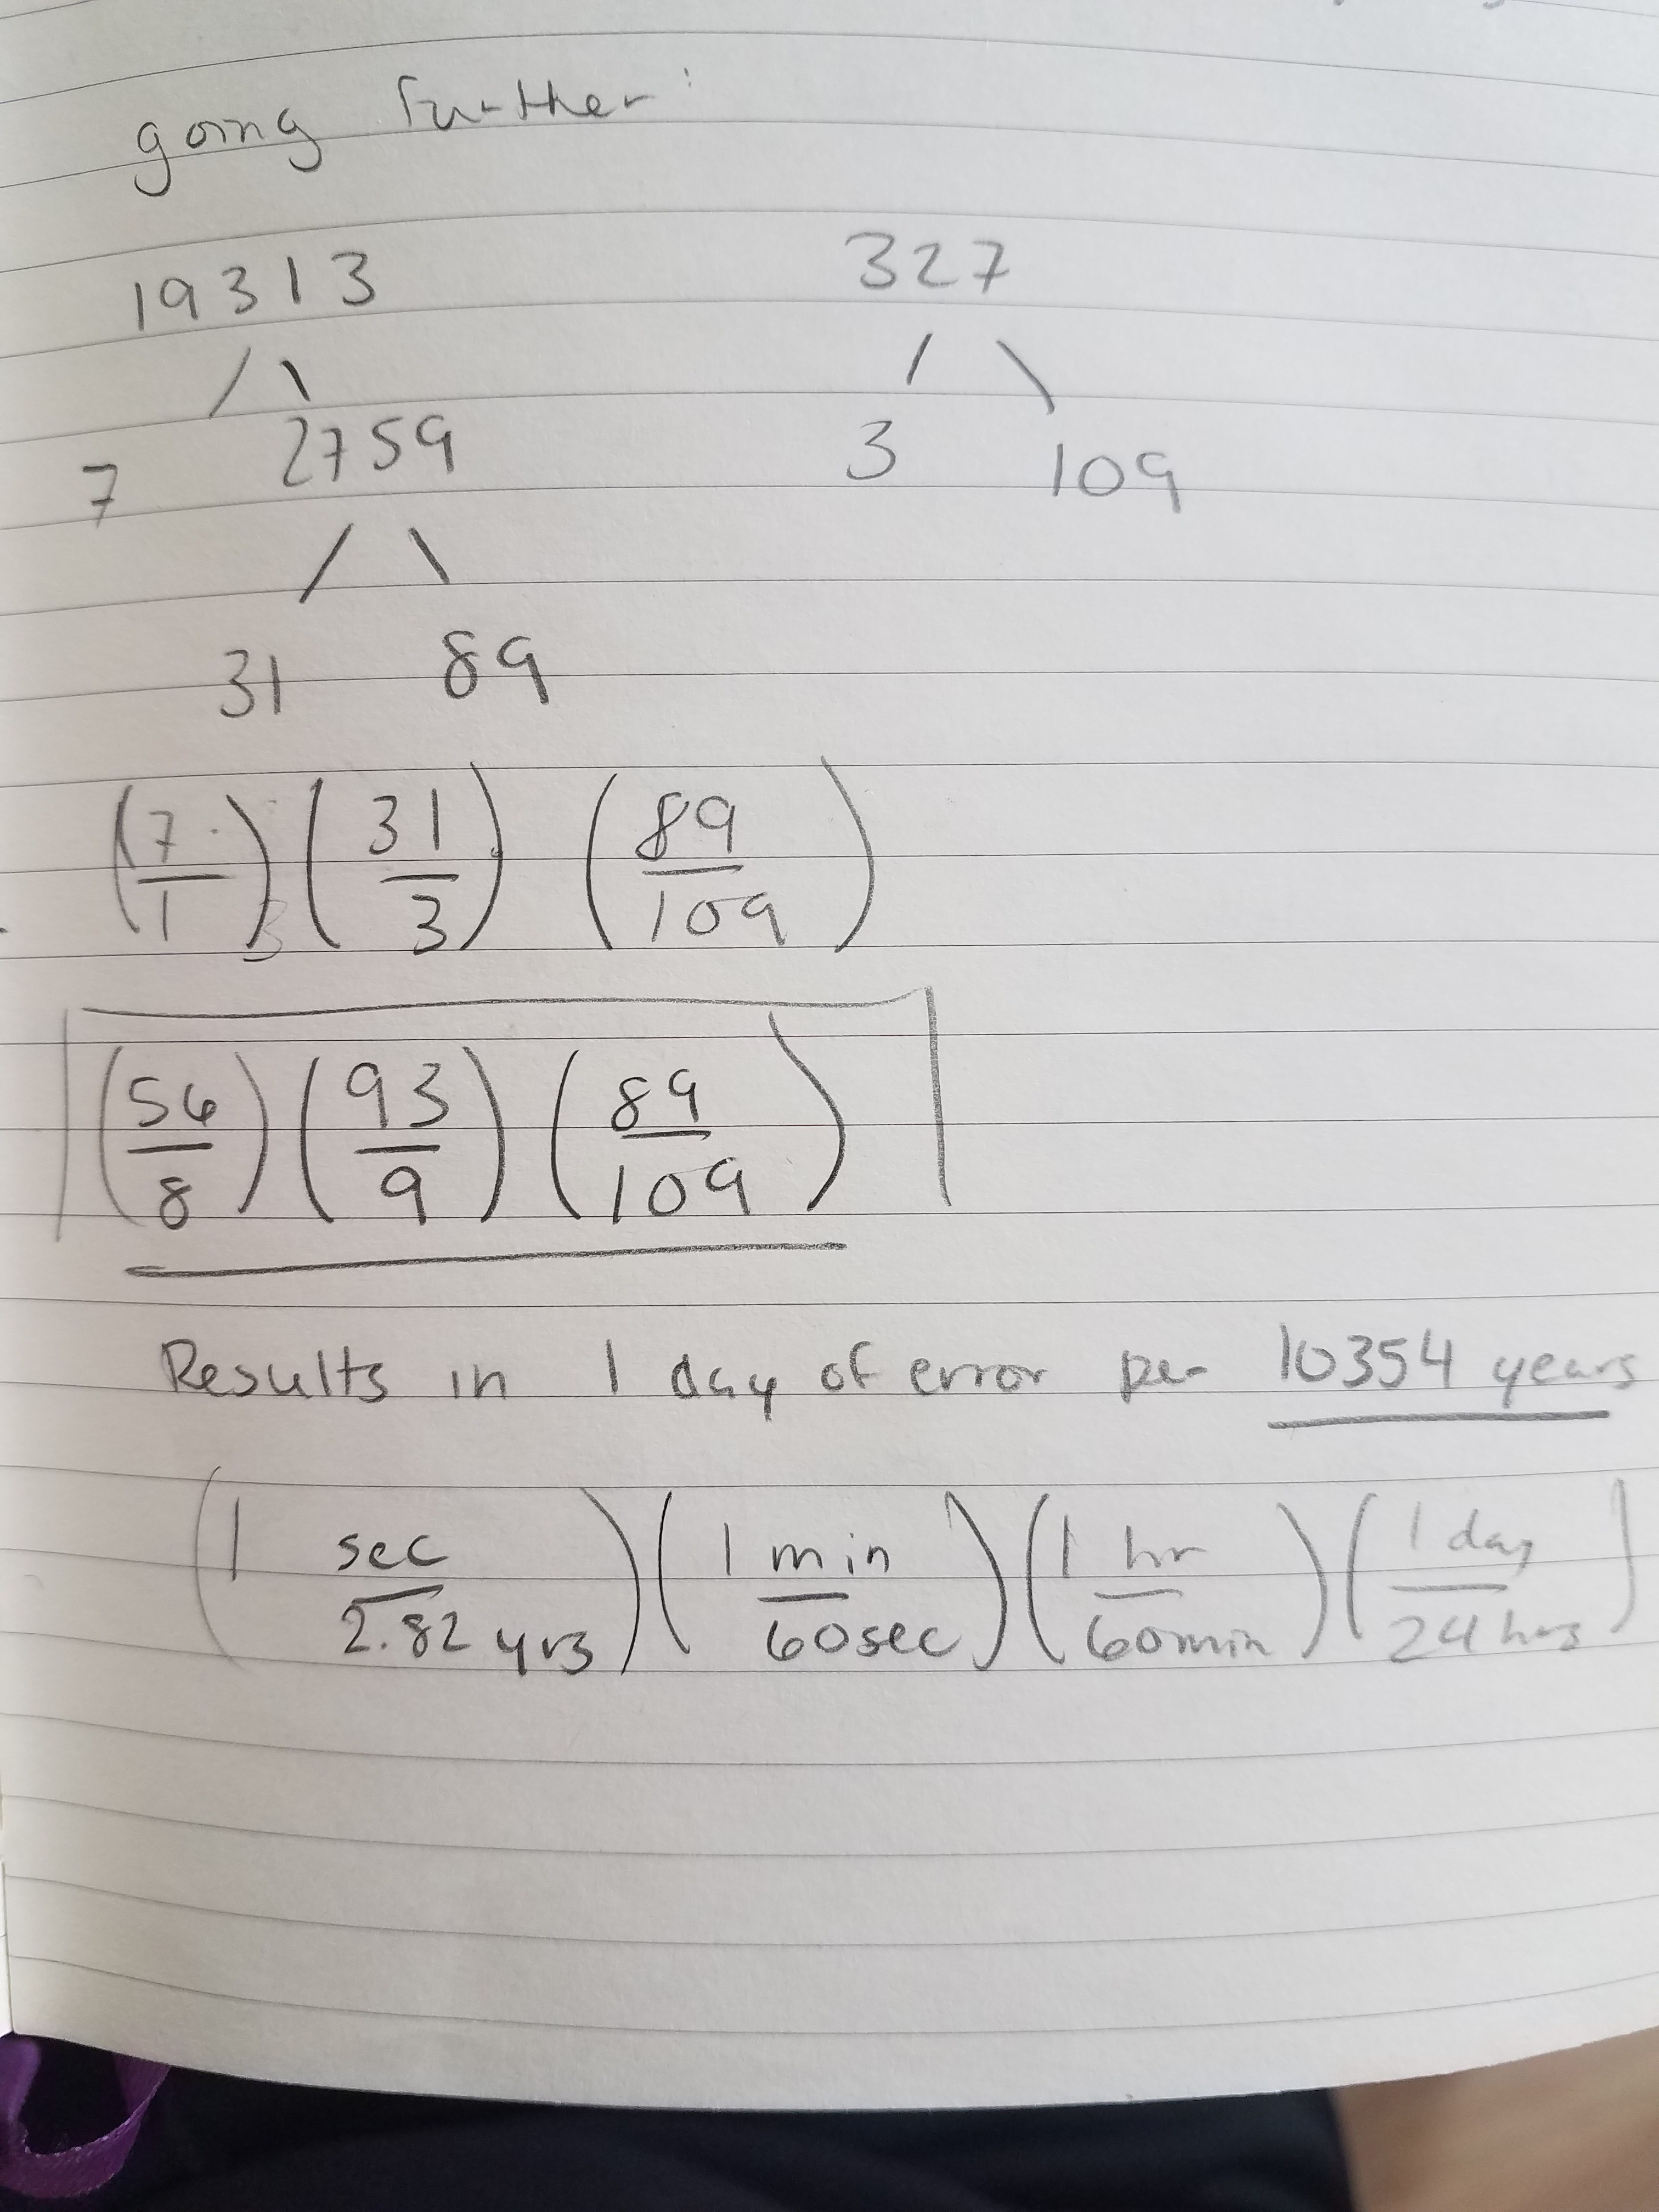 going further:
19313 327
/ \ / \
7 2759 3 109
/ \
31 89
(7/1)(31/3)(89/109)
(56/8)(93/9)(89/109)
Results in 1 day of error per 10354 years
(1 sec/2.82 yrs)(1 min/60sec)(1 hr/60min)(1 day/24 hrs)